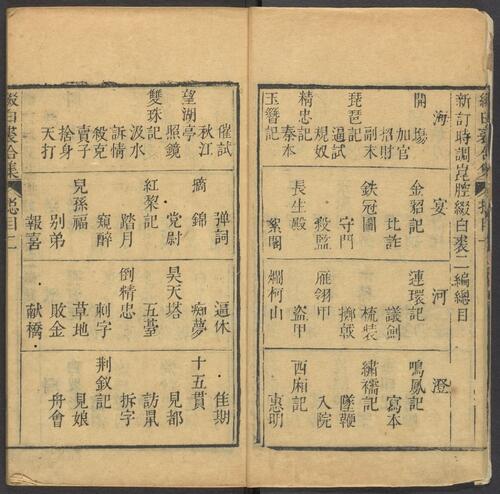 新訂時調崑腔綴白裘二編總目
海
開場
加官
招財
副末
琵琶記
逼試
規奴
精忠記
奏本
玉簪記
宴
金貂記
北詐
鉄冠圖
守門
殺監
長生殿
絮閣
河
連環記
議劍
梳粧
擲戟
雁翎甲
盜甲
爛柯山
澄
鳴鳳記
寫本
繡襦記
墜鞭
入院
西廂記
惠明
催試
秋江
望湖亭
照鏡
雙珠記
汲水
訴情
殺克
賣子
捨身
天打
彈詞
摘錦
党尉
紅梨記
踏月
窺醉
兒孫福
别弟
報喜
逼休
痴夢
昊天塔
五臺
倒精忠
刺字
草地
敗金
献橋
佳期
十五貫
見都
訪鼠
拆字
荆釵記
見娘
舟會
綴白裘合集
總目二